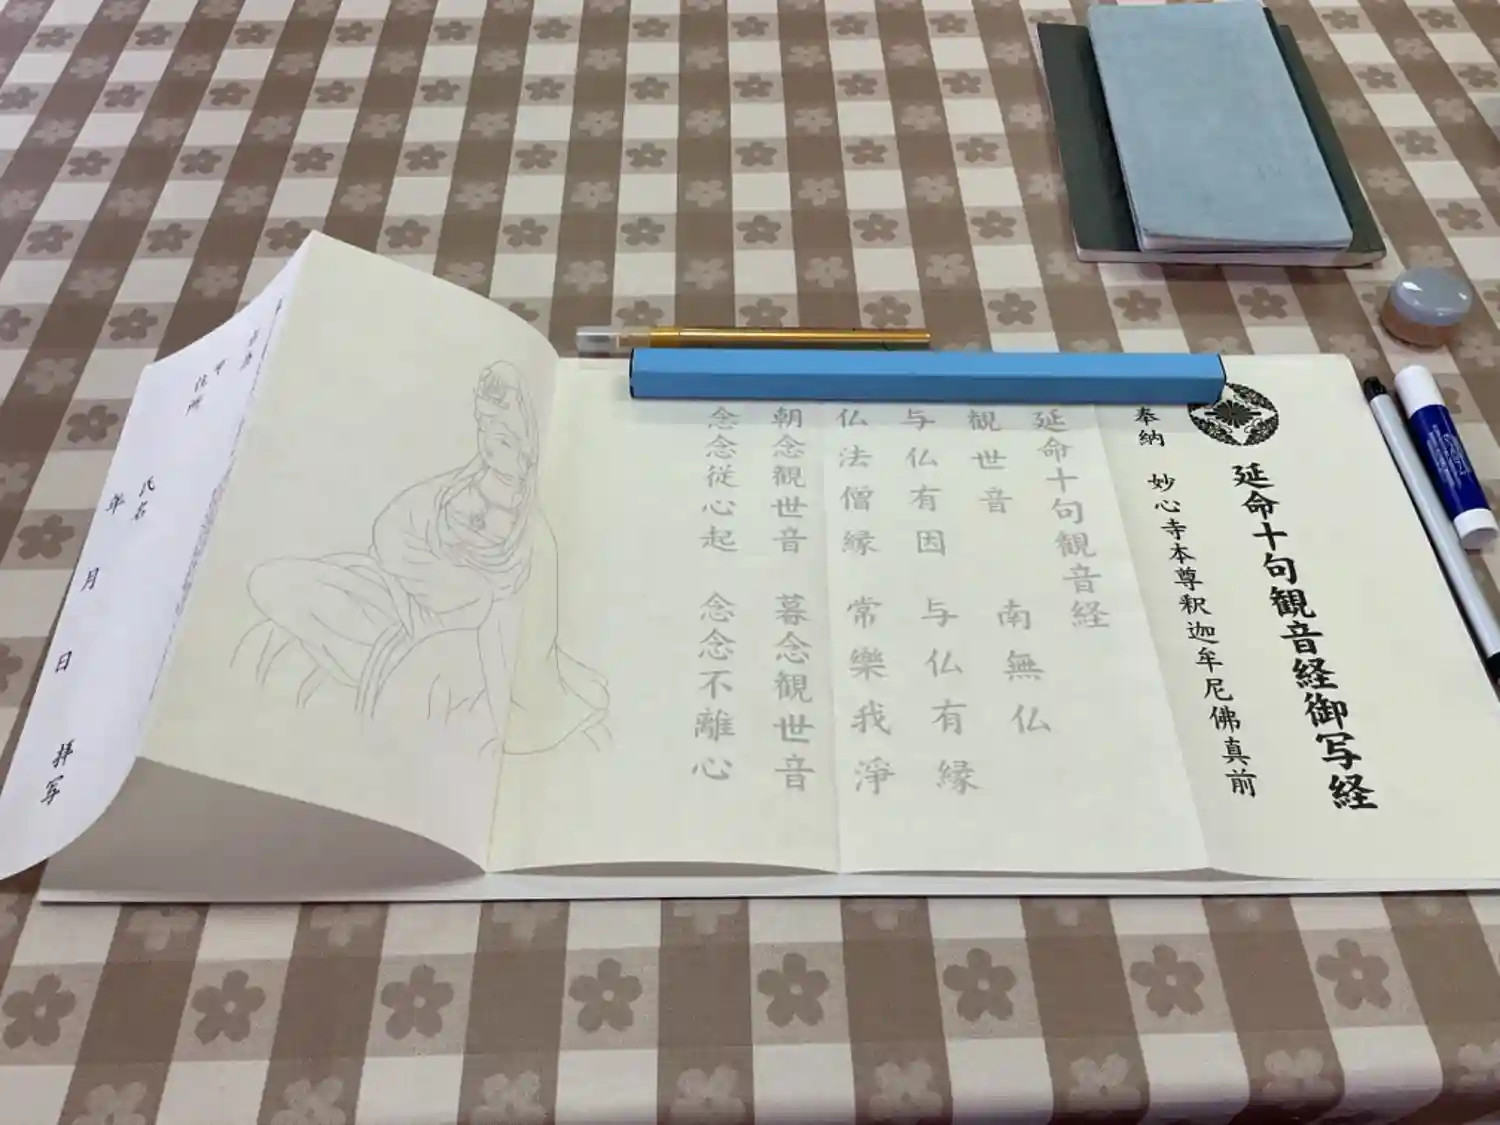 延命十句観音経御写経
奉納 妙心寺本尊釈迦牟尼佛真前
延命十句観音経
観世音 南無仏
与仏有因 与仏有縁
仏法僧縁 常樂我淨
朝念観世音 暮念観世音
念念従心起 念念不離心
住所
氏名
年 月 日 拝写